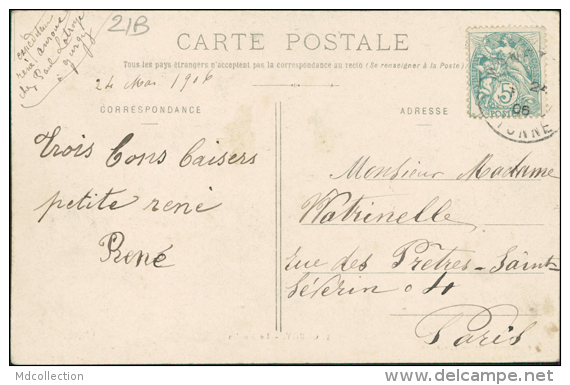 expéditeur
rené
chez Paul
à gurgy
21B
CARTE POSTALE
Tous les pays étrangers n'acceptent pas la correspondance au recto (Se renseigner à la Poste)
24 Mai 1906
CORRESPONDANCE
ADRESSE
5
POSTES
24
06
YONNE
Trois bons baisers
petite rené
René
Monsieur Madame
Watrinelle
rue des Prètres-Saint-
Séverin
Paris
Mdcollection
delcampe.net